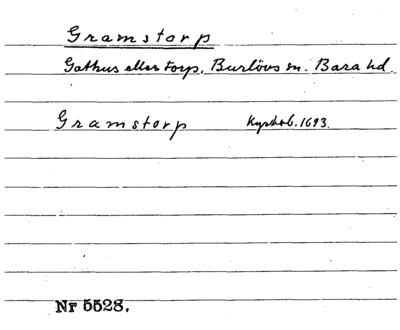 Gramstorp
Gathus eller torp. Burlövs sn. Bara hd.
Gramstorp Kyrkob. 1693.
Nr 5528.